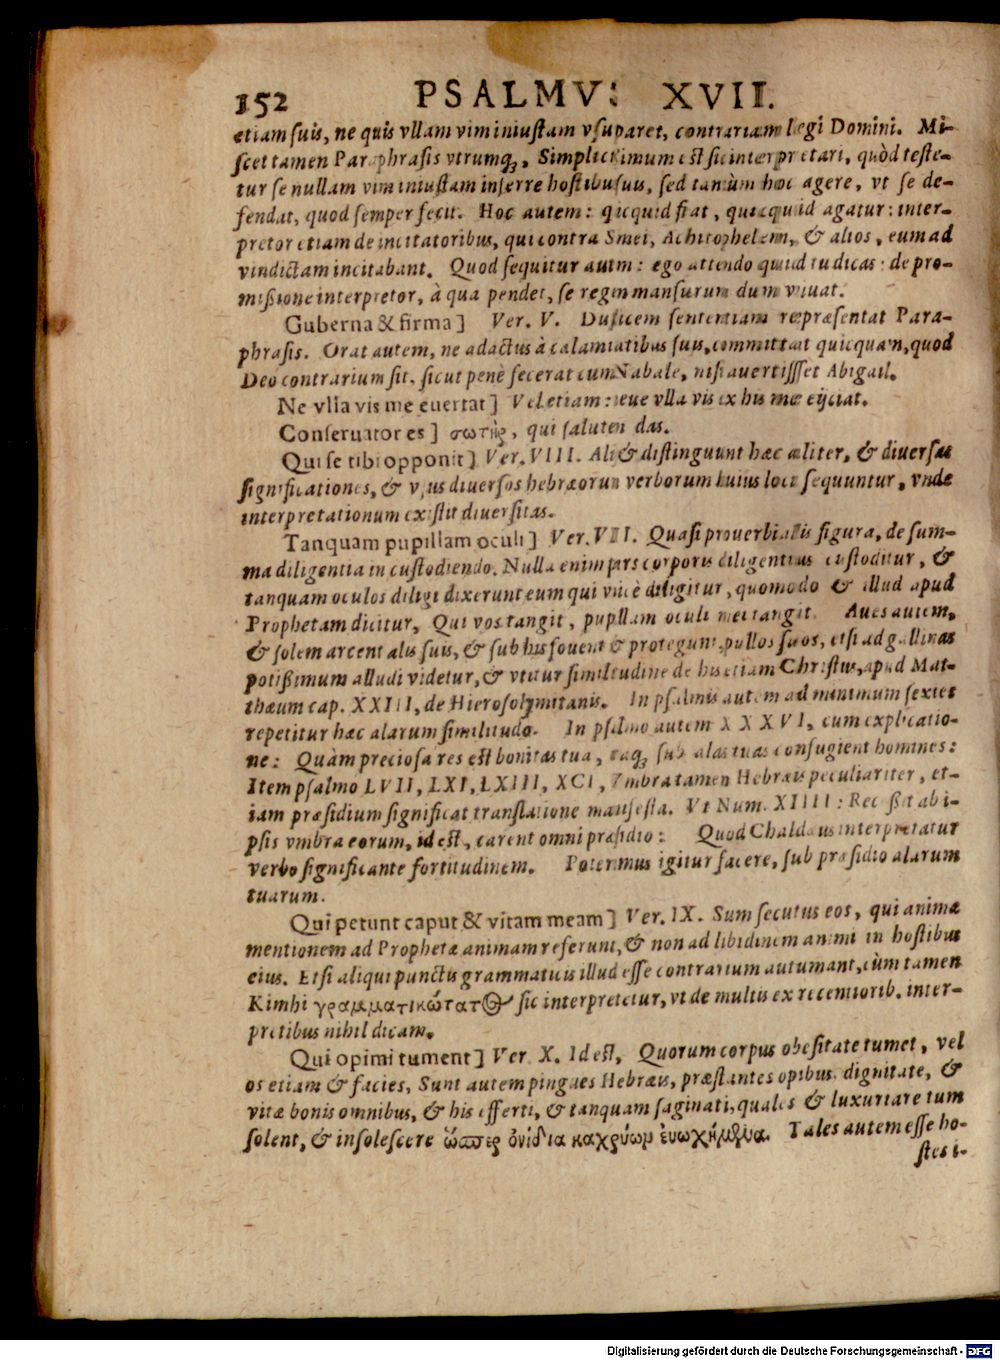 152 PSALMVS XVII.
etiam ſuis, ne quis vllam vim iniuſtam vſurparet, contrariam legi Domini. Mi-
ſcet tamen Paraphraſis vtrumq́;, Simpliciſſimum eſt ſic interpretari, quòd teſte-
tur ſe nullam vim iniuſtam inferre hoſtibus ſuis, ſed tantùm hoc agere, vt ſe de-
fendat, quod ſemper fecit. Hoc autem: quicquid fiat, quicquid agatur: inter-
pretor etiam de incitatoribus, qui contra Smei, Achitophelem, & alios, eum ad
vindictam incitabant. Quod ſequitur autm: ego attendo quid tu dicas: de pro-
mißione interpretor, à qua pendet, ſe regem manſurum dum viuat.
Guberna & firma] Ver. V. Duplicem ſententiam repræſentat Para-
phraſis. Orat autem, ne adactus à calamitatibus ſuis, committat quicquam, quod
Deo contrarium ſit, ſicut penè fecerat cum Nabale, niſi auertiſſet Abigail.
Ne vlla vis me euertat] Vel etiam: neue vlla vis ex his me eijciat.
Conſeruator es] σωτὴρ, qui ſalutem das.
Qui ſe tibi opponit] Ver. VIII. Alij & diſtinguunt hæc aliter, & diuerſas
ſignificationes, & vſus diuerſos hebræorum verborum huius loci ſequuntur, vnde
interpretationum exiſtit diuerſitas.
Tanquam pupillam oculi] Ver. VIII. Quaſi prouerbialis figura, de ſum-
ma diligentia in cuſtodiendo. Nulla enim pars corporis diligentius cuſtoditur, &
tanquam oculos diligi dixerunt eum qui vnicè diligitur, quomodo & illud apud
Prophetam dicitur, Qui vos tangit, pupillam oculi mei tangit. Aues autem,
& ſolem arcent alis ſuis, & ſub his fouent & protegunt pullos ſuos, etſi ad gallinas
potißimum alludi videtur, & vtitur ſimilitudine de his etiam Chriſtus, apud Mat-
thæum cap. XXIII, de Hieroſolymitanis. In pſalmis autem ad minimum ſexies
repetitur hæc alarum ſimilitudo. In pſalmo autem XXXVI, cum explicatio-
ne: Quàm precioſa res eſt bonitas tua, itaq; ſub alas tuas confugient homines:
Item pſalmo LVII, LXI, LXIII, XCI, Vmbra tamen Hebræis peculiariter, et-
iam præſidium ſignificat tranſlatione manifeſta. Vt Num. XIIII: Receßit ab i-
pſis vmbra eorum, id eſt, carent omni præſidio: Quod Chaldæus interpretatur
verbo ſignificante fortitudinem. Poterimus igitur facere, ſub præſidio alarum
tuarum.
Qui petunt caput & vitam meam] Ver. IX. Sum ſecutus eos, qui animæ
mentionem ad Prophetæ animam referunt, & non ad libidinem animi in hoſtibus
eius. Etſi aliqui punctis grammaticis illud eſſe contrarium autumant, cùm tamen
Kimhi γραμματικώτατος ſic interpretetur, vt de multis ex recentiorib. inter-
pretibus nihil dicam.
Qui opimi tument] Ver. X. Id eſt, Quorum corpus obeſitate tumet, vel
os etiam & facies, Sunt autem pingues Hebræis, præſtantes opibus, dignitate, &
vitæ bonis omnibus, & his efferti, & tanquam ſaginati, quales & luxuriare tum
ſolent, & inſoleſcere ὥσπερ ὀνίδια καχρύων εὐωχημένα. Tales autem eſſe ho-
ſtes i-
Digitalisierung gefördert durch die Deutsche Forschungsgemeinschaft - DFG